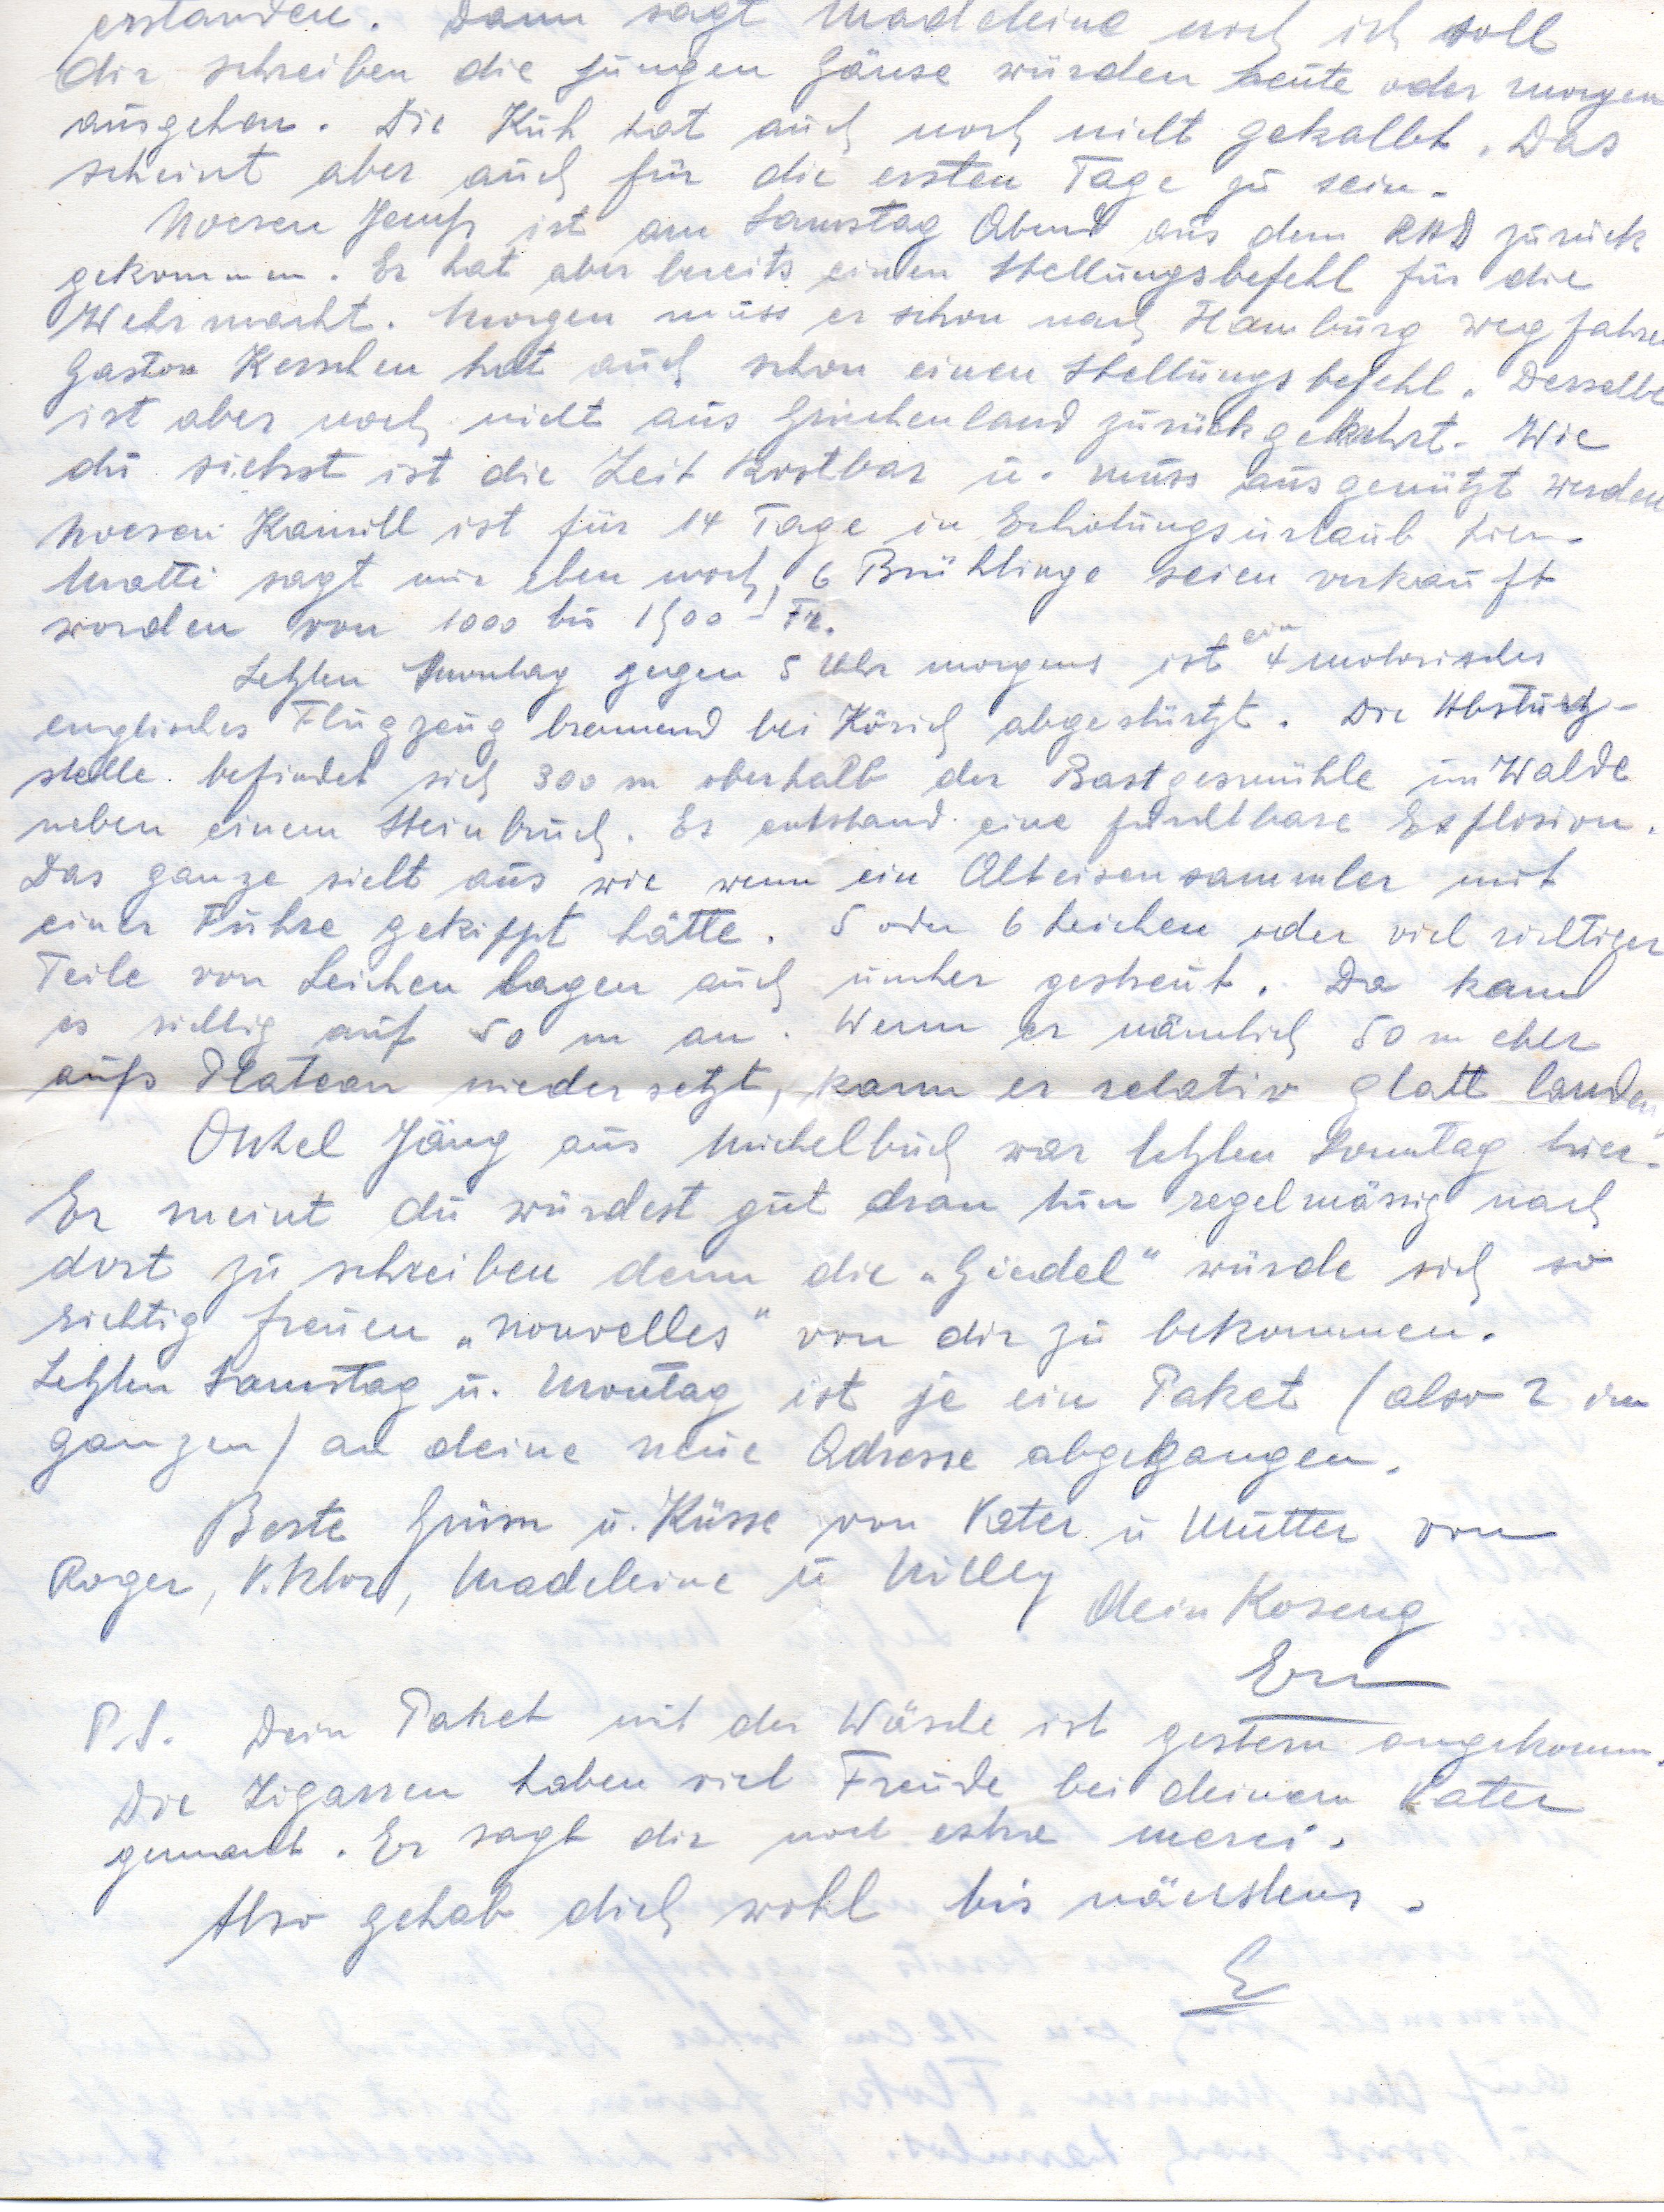 erstanden. Dann sagt Madeleine noch ich soll
dir schreiben die jungen Gänse würden heute oder morgen
ausgehen. Die Kuh hat auch noch nicht gekalbt. Das
scheint aber auch für die ersten Tage zu sein.
Noesen Jemp ist am Samstag Abend aus dem RAD zurück
gekommen. Er hat aber bereits einen Stellungsbefehl für die
Wehrmacht. Morgen muss er schon nach Hamburg wegfahren
Gaston Kerschen hat auch schon einen Stellungsbefehl. Derselbe
ist aber noch nicht aus Griechenland zurückgekehrt. Wie
du siehst ist die Zeit kostbar u. muss ausgenützt werden
Noesen Kamill ist für 14 Tage in Erholungsurlaub hier.
Matti sagt mir eben noch, 6 Brühlinge seien verkauft
worden von 1000 bis 1500 - Fr.
Letzten Montag gegen 5 Uhr morgens ist ein 4 motorisches
englisches Flugzeug brennend bei Körich abgestürtzt. Die Absturtz-
stelle befindet sich 300 m oberhalb der Bastgesmühle im Walde
neben einem Steinbruch. Es entstand eine furchtbare Explosion.
Das ganze sieht aus wie wenn ein Alteisensammler mit
einer Fuhre gekippt hätte. 5 oder 6 Leichen oder viel richtiger
Teile von Leichen lagen auch umher gestreut. Da kam
es richtig auf 50 m an. Wenn er nämlich 50 m eher
aufs Plateau niedersetzt, kann er relativ glatt landen
Onkel Jäng aus Michelbuch war letzten Sonntag hier.
Er meint du würdest gut dran tun regelmässig nach
dort zu schreiben denn die „Giedel“ würde sich so
richtig freuen „nouvelles“ von dir zu bekommen.
Letzten Samstag u. Montag ist je ein Paket (also 2 im
ganzen) an deine neue Adresse abgegangen.
Beste Grüsse u. Küsse von Vater u Mutter von
Roger, Viktor, Madeleine u Milly
Dein Koseng
Ern
P.S. Dein Paket mit der Wäsche ist gestern angekomm.
Die Zigarren haben viel Freude bei deinem Vater
gemacht. Er sagt dir noch extra merci.
Also gehab dich wohl bis nächstens.
E